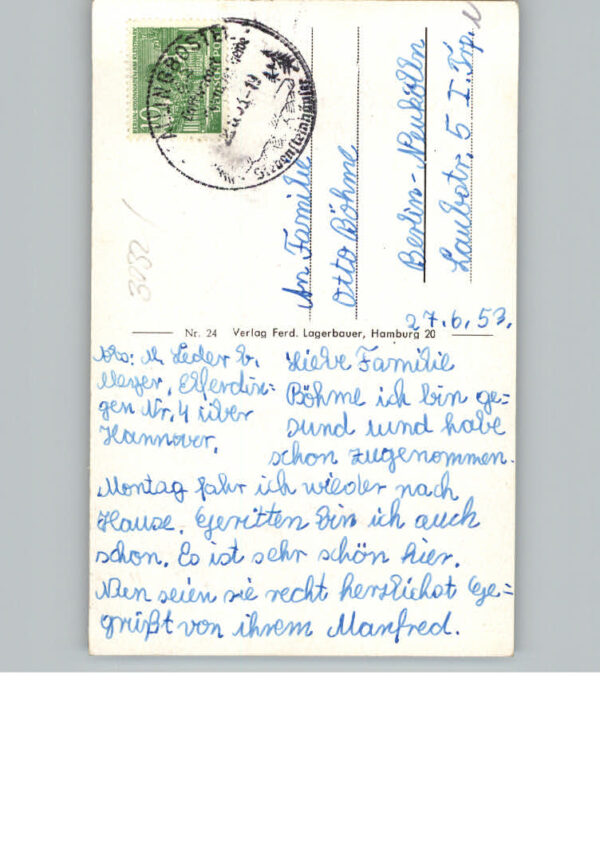 BERLIN
10
DEUTSCHE POST
FALLINGBOSTEL
Siebensteinhäuser
An Familie
Otto Böhme
Berlin-Neukölln
Laubstr. 5 I. Trp.
3032 /
27.6.53.
Nr. 24 Verlag Ferd. Lagerbauer, Hamburg 20
Abs: M. Leder b.
Meyer, Elferdin=
gen Nr. 4 über
Hannover.
Liebe Familie
Böhme ich bin ge=
sund und habe
schon zugenommen.
Montag fahr ich wieder nach
Hause. Geritten bin ich auch
schon. Es ist sehr schön hier.
Nun seien sie recht herzlichst Ge=
grüßt von ihrem Manfred.